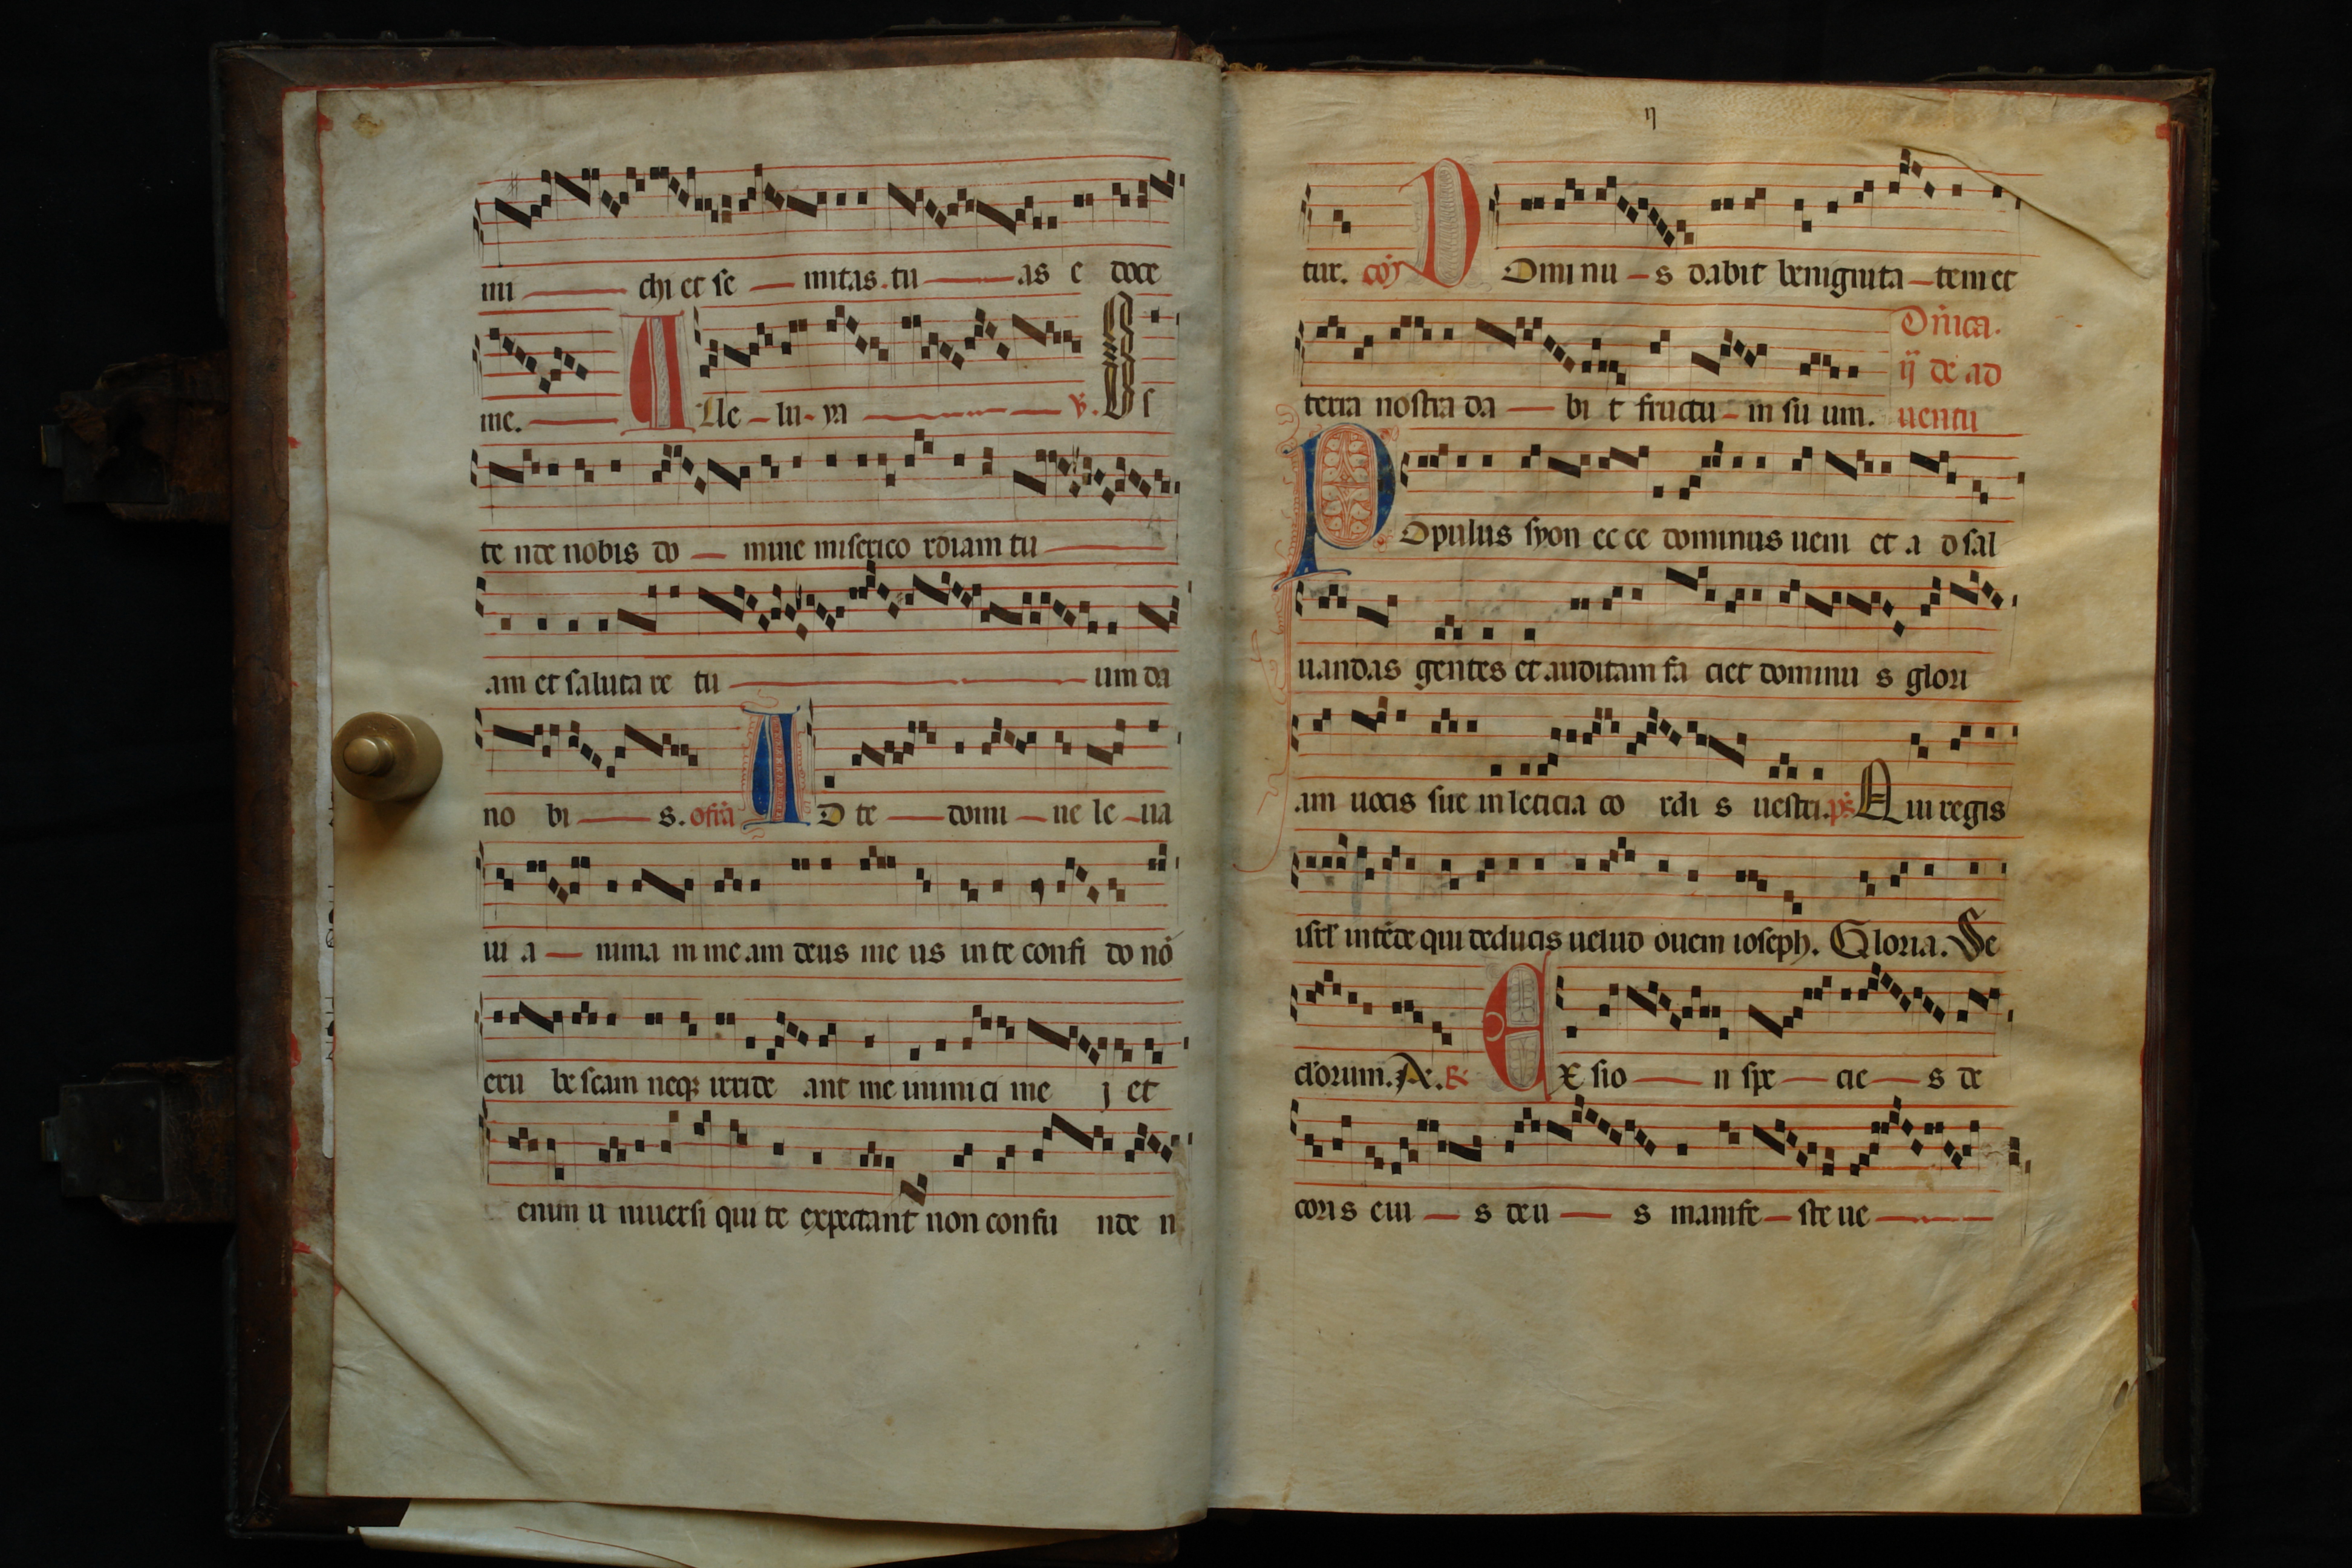 mi chi et se mitas tu as e doce
me. Alle lu ya ℣. Os
te nde nobis do mine miserico rdiam tu
am et saluta re tu um da
no bi s. offa AD te domi ne le ua
ui a nima m me am deus me us in te confi do nō
eru be scam neqꝫ irride ant me inimi ci me j et
enim u niuersi qui te expectant non confu nde n
ij
tur. cōj DOmi nu s dabit benignita tem et
terra nostra da bi t fructu m su um.
Dn̄ica.
ij de ad
uentu
POpulus syon ec ce dominus ueni et a d sal
uandas gentes et auditam fa ciet dominu s glori
am uocis sue in leticia co rdi s uestri. ps̄ Qui regis
isrl̄ intēde qui deducis uelud ouem ioseph. Gloria. Se
clorum. Ae. ℟ EX sio n spe cie s de
coris eiu s deu s manife ste ue